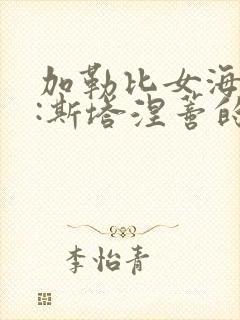 加勒比女海
:斯塔涅蓄的
李怡青